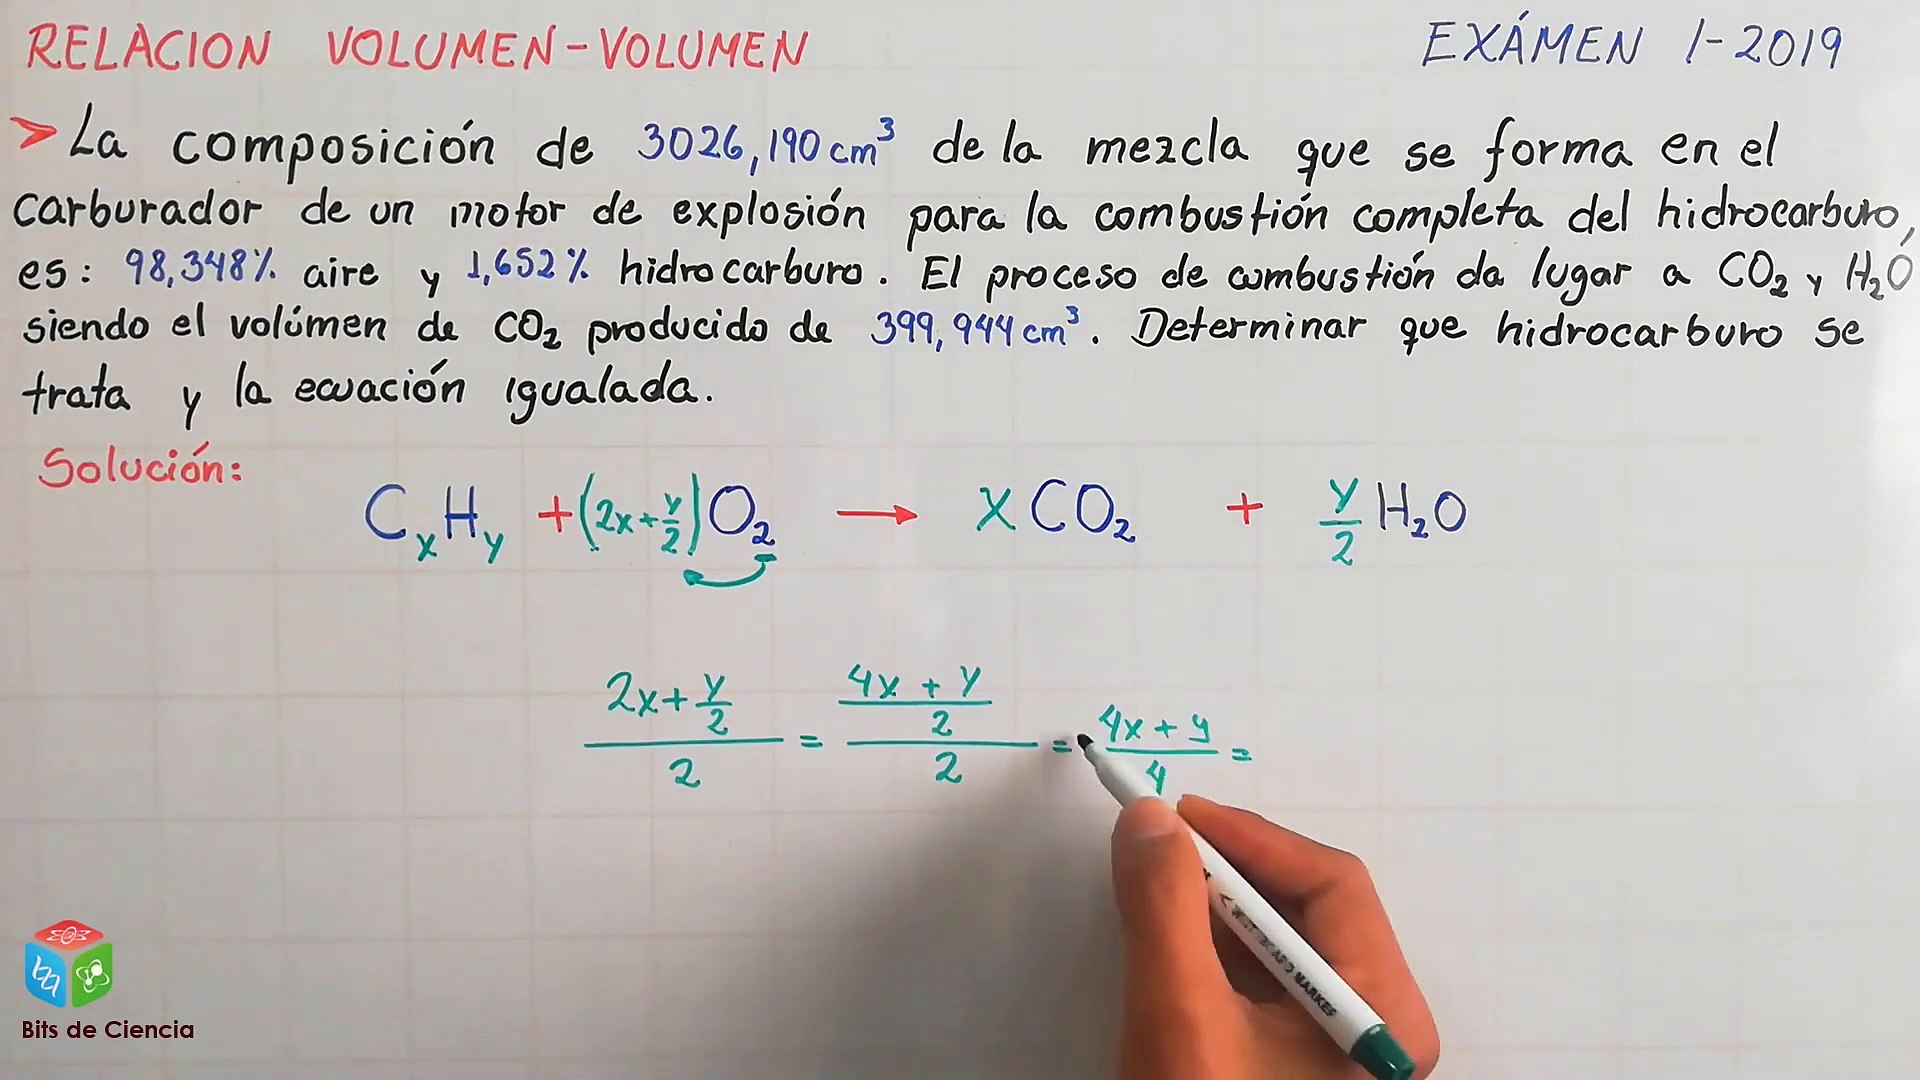 RELACION VOLUMEN-VOLUMEN
EXÁMEN 1-2019
➤La composición de 3026,190 cm³ de la mezcla que se forma en el
carburador de un motor de explosión para la combustión completa del hidrocarburo,
es: 98,348% aire y 1,652% hidrocarburo. El proceso de combustión da lugar a CO₂ y H₂O
siendo el volúmen de CO₂ producido de 399,944 cm³. Determinar que hidrocarburo se
trata y la ecuación igualada.
Solución:
CₓHᵧ + (2x+y/2)O₂ → XCO₂ + y/2 H₂O
(2x+y/2)/2 = ((4x+y)/2)/2 = (4x+y)/4 =
Bits de Ciencia